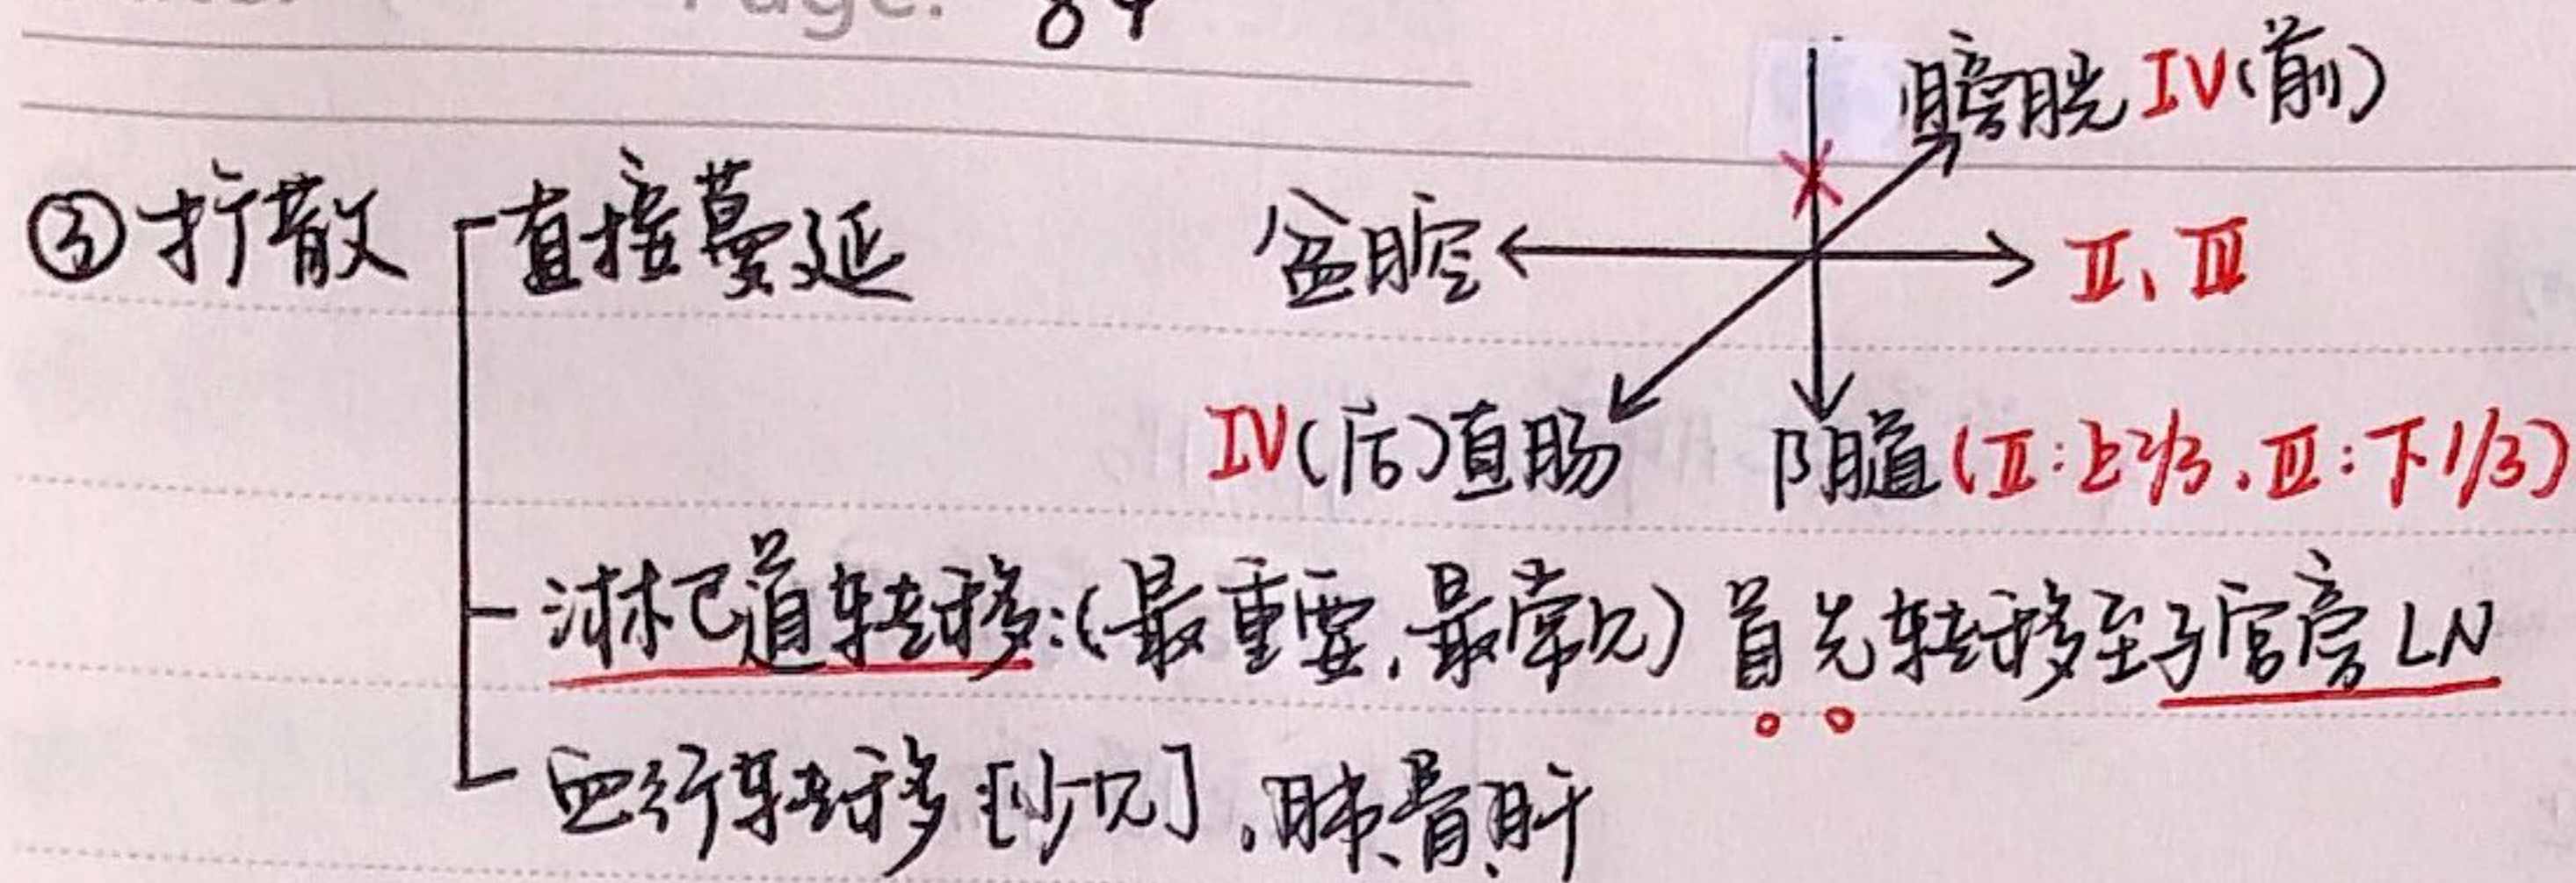 Page: 84
膀胱 IV(前)
③扩散 直接蔓延 盆腔 II、III
IV(后)直肠 阴道(II:上2/3.III:下1/3)
淋巴道转移:(最重要,最常见) 首先转移至子宫旁LN
血行转移[少见],肺、骨、肝